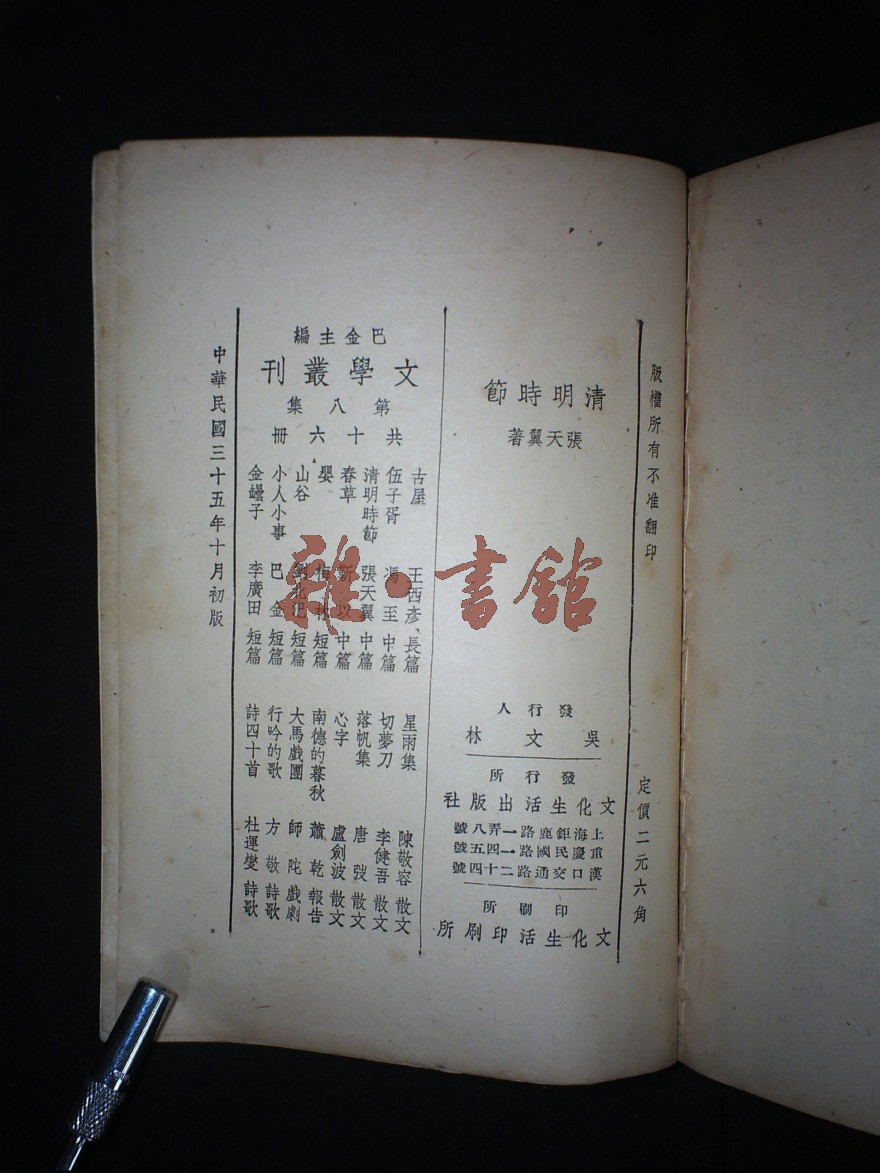 版權所有不准翻印
定價二元六角
清明時節
張天翼著
發行人
吳文林
發行所
文化生活出版社
上海鉅鹿路一弄八號
重慶民國路一四五號
漢口交通路二十四號
印刷所
文化生活印刷所
巴金主編
文學叢刊
第八集
共十六冊
古屋 王西彥 長篇
伍子胥 馮至 中篇
清明時節 張天翼 中篇
春草 靳以 中篇
嬰 梅林 短篇
山谷 劉北汜 短篇
小人小事 巴金 短篇
金罎子 李廣田 短篇
星雨集 陳敬容 散文
切夢刀 李健吾 散文
落帆集 唐弢 散文
心字 盧劍波 散文
南德的暮秋 蕭乾 報告
大馬戲團 師陀 戲劇
行吟的歌 方敬 詩歌
詩四十首 杜運燮 詩歌
中華民國三十五年十月初版
雜·書館